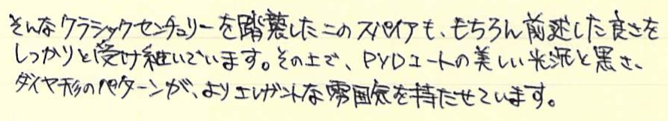 そんなクラシックセンチュリーを踏襲したこのスパイアも、もちろん前述した良さを
しっかりと受け継いでいます。その上で、PVDコートの美しい光沢と黒さ、
ダイヤ形のパターンが、よりエレガントな雰囲気を持たせています。